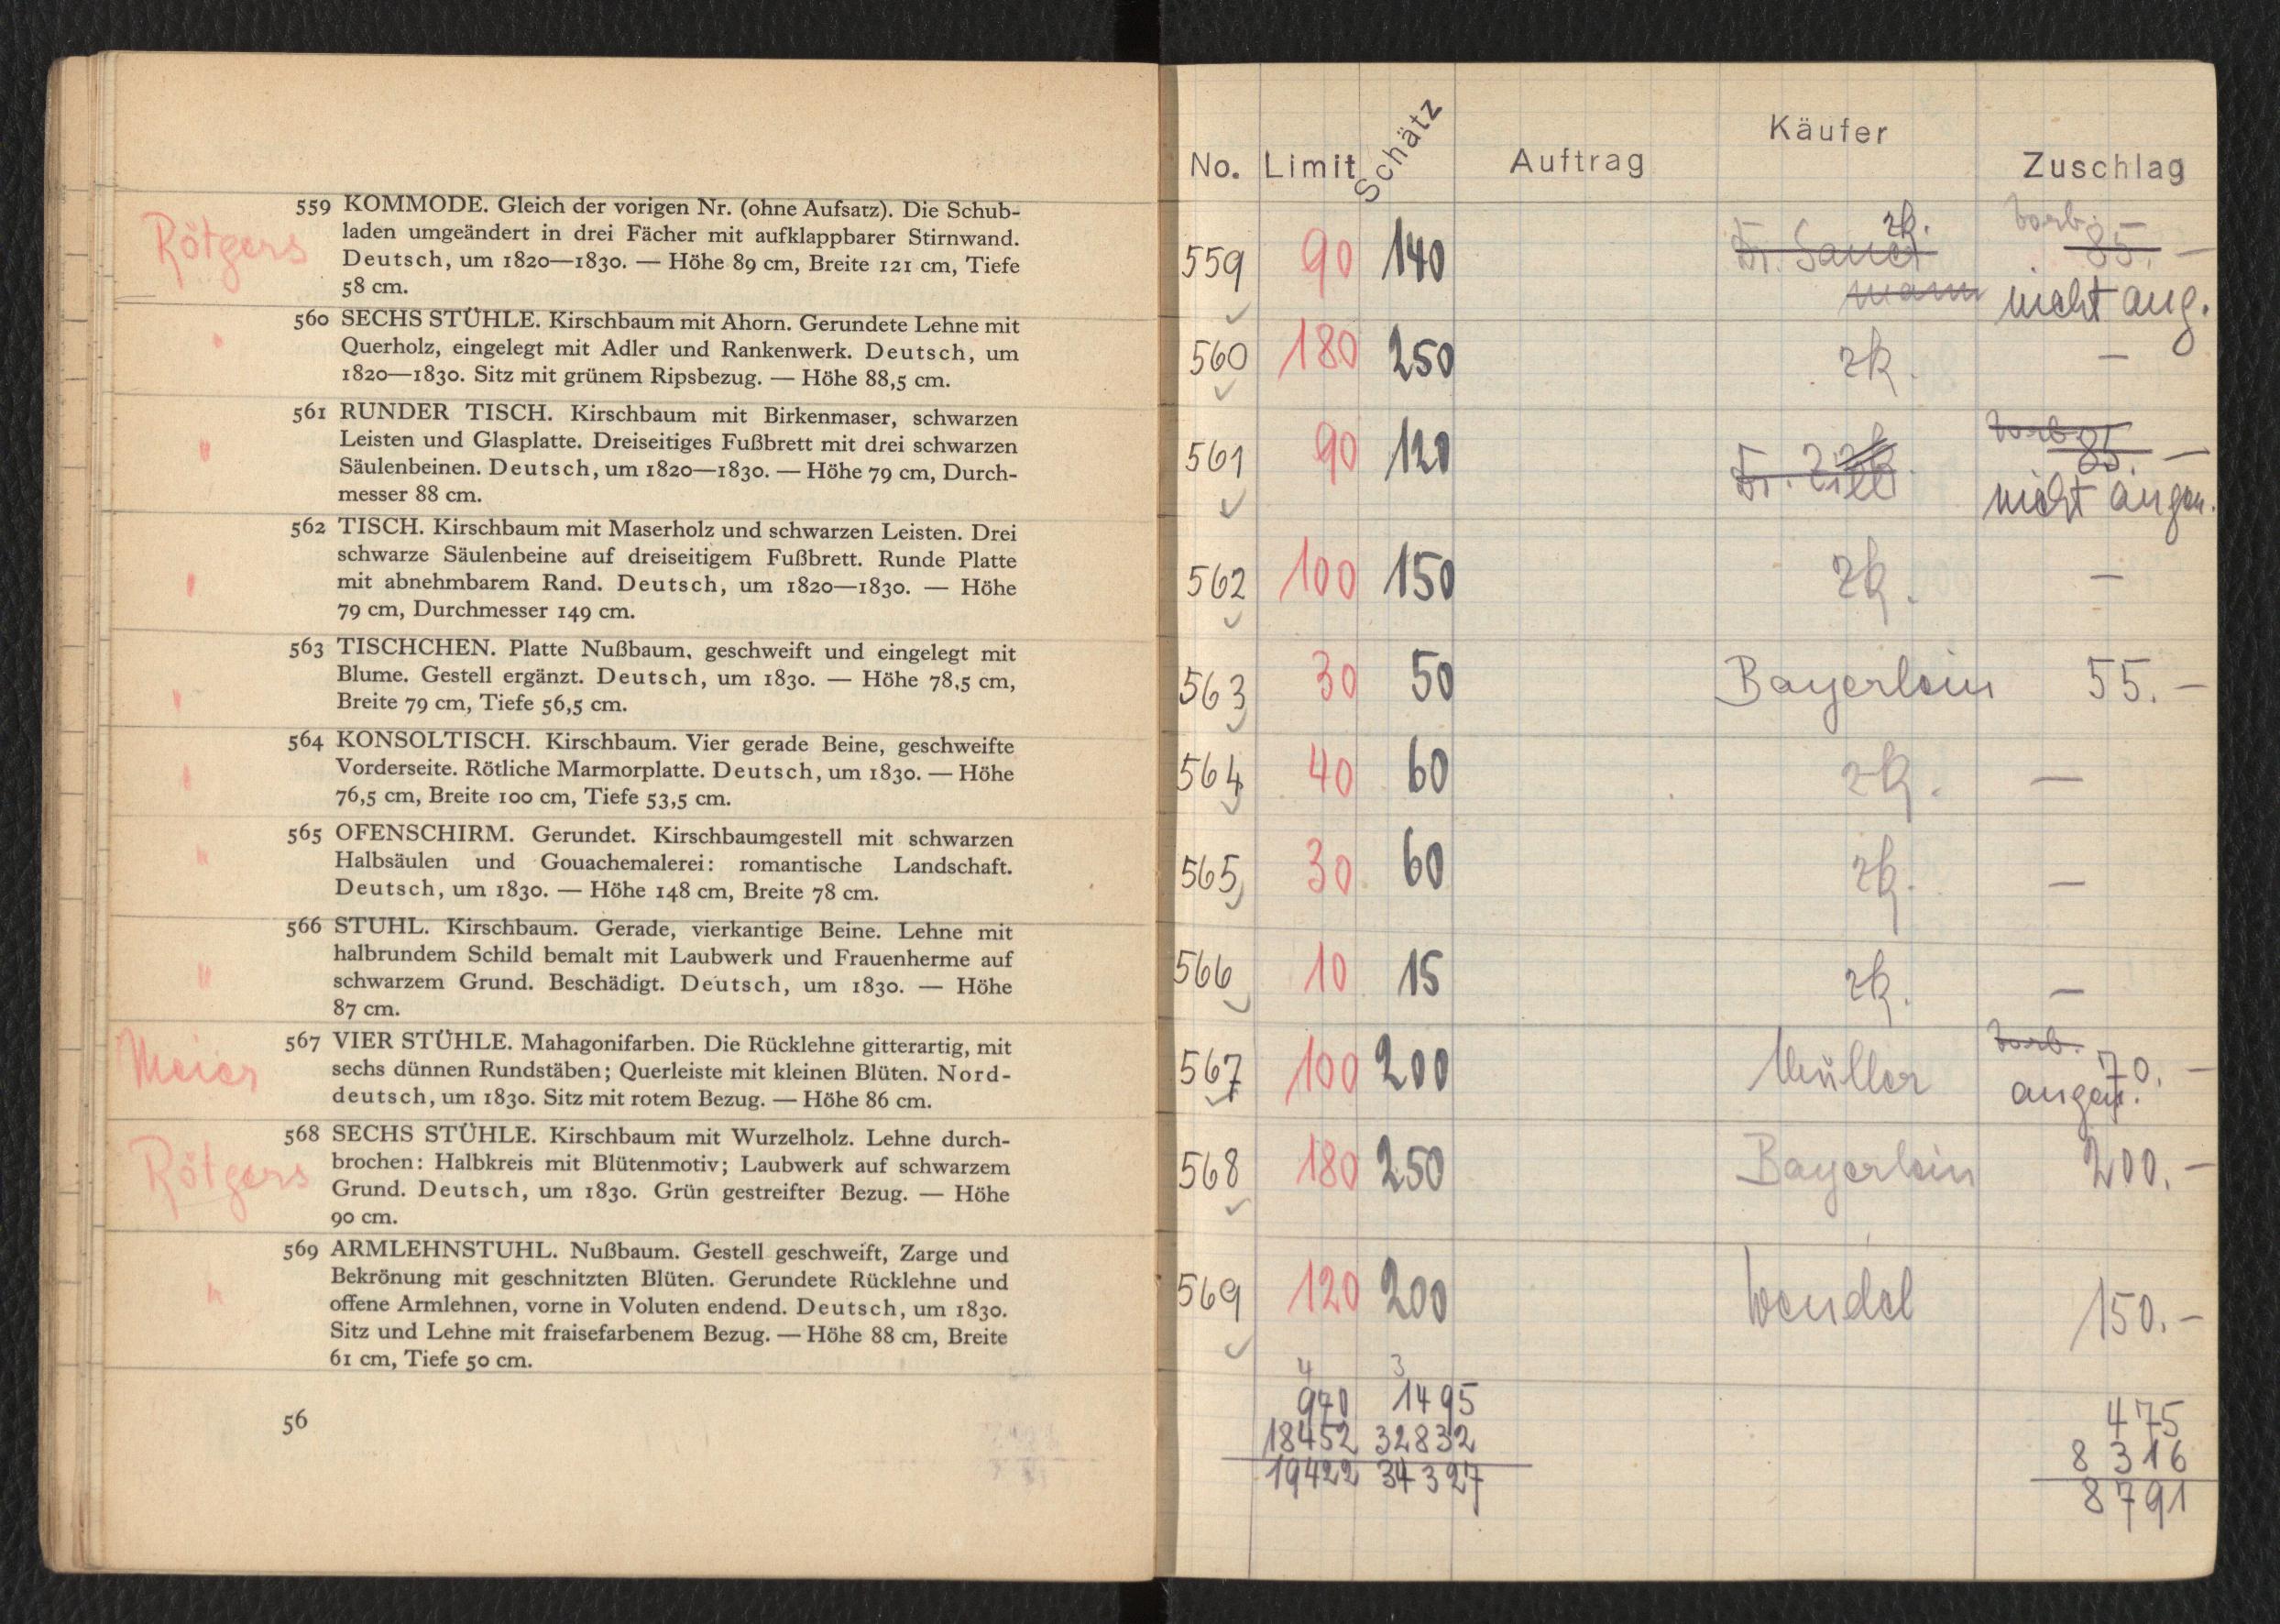 559 KOMMODE. Gleich der vorigen Nr. (ohne Aufsatz). Die Schub-
laden umgeändert in drei Fächer mit aufklappbarer Stirnwand.
Deutsch, um 1820—1830. — Höhe 89 cm, Breite 121 cm, Tiefe
58 cm.
Rötgers
560 SECHS STÜHLE. Kirschbaum mit Ahorn. Gerundete Lehne mit
Querholz, eingelegt mit Adler und Rankenwerk. Deutsch, um
1820—1830. Sitz mit grünem Ripsbezug. — Höhe 88,5 cm.
561 RUNDER TISCH. Kirschbaum mit Birkenmaser, schwarzen
Leisten und Glasplatte. Dreiseitiges Fußbrett mit drei schwarzen
Säulenbeinen. Deutsch, um 1820—1830. — Höhe 79 cm, Durch-
messer 88 cm.
"
562 TISCH. Kirschbaum mit Maserholz und schwarzen Leisten. Drei
schwarze Säulenbeine auf dreiseitigem Fußbrett. Runde Platte
mit abnehmbarem Rand. Deutsch, um 1820—1830. — Höhe
79 cm, Durchmesser 149 cm.
"
563 TISCHCHEN. Platte Nußbaum, geschweift und eingelegt mit
Blume. Gestell ergänzt. Deutsch, um 1830. — Höhe 78,5 cm,
Breite 79 cm, Tiefe 56,5 cm.
"
564 KONSOLTISCH. Kirschbaum. Vier gerade Beine, geschweifte
Vorderseite. Rötliche Marmorplatte. Deutsch, um 1830. — Höhe
76,5 cm, Breite 100 cm, Tiefe 53,5 cm.
"
565 OFENSCHIRM. Gerundet. Kirschbaumgestell mit schwarzen
Halbsäulen und Gouachemalerei: romantische Landschaft.
Deutsch, um 1830. — Höhe 148 cm, Breite 78 cm.
"
566 STUHL. Kirschbaum. Gerade, vierkantige Beine. Lehne mit
halbrundem Schild bemalt mit Laubwerk und Frauenherme auf
schwarzem Grund. Beschädigt. Deutsch, um 1830. — Höhe
87 cm.
"
567 VIER STÜHLE. Mahagonifarben. Die Rücklehne gitterartig, mit
sechs dünnen Rundstäben; Querleiste mit kleinen Blüten. Nord-
deutsch, um 1830. Sitz mit rotem Bezug. — Höhe 86 cm.
Meier
568 SECHS STÜHLE. Kirschbaum mit Wurzelholz. Lehne durch-
brochen: Halbkreis mit Blütenmotiv; Laubwerk auf schwarzem
Grund. Deutsch, um 1830. Grün gestreifter Bezug. — Höhe
90 cm.
Rötgers
569 ARMLEHNSTUHL. Nußbaum. Gestell geschweift, Zarge und
Bekrönung mit geschnitzten Blüten. Gerundete Rücklehne und
offene Armlehnen, vorne in Voluten endend. Deutsch, um 1830.
Sitz und Lehne mit fraisefarbenem Bezug. — Höhe 88 cm, Breite
61 cm, Tiefe 50 cm.
"
56
No. Limit Schätz Auftrag Käufer Zuschlag
559 90 140 zk. Vorb. 85.—
nicht ang.
560 180 250 zk. —
561 90 120 Vorb. 85.—
nicht angen.
562 100 150 zk. —
563 30 50 Bayerlein 55.—
564 40 60 zk. —
565 30 60 zk. —
566 10 15 zk. —
567 100 200 Müller Vorb. 70.—
angen.
568 180 250 Bayerlein 200.—
569 120 200 Wendel 150.—
4 3
970 1495 475
18452 32832 8316
19422 34327 8791